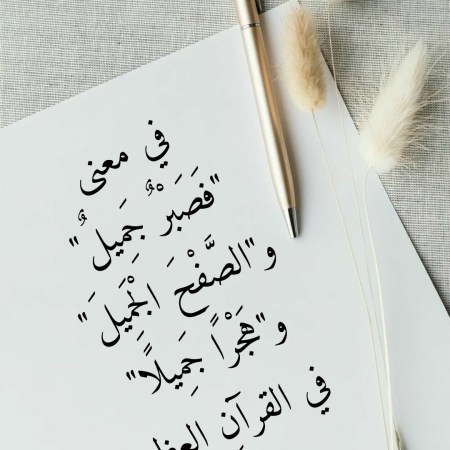 في معنى
"فَصَبْرٌ جَمِيلٌ"
و"الصَّفْحَ الْجَمِيلَ"
و"هَجْرًا جَمِيلًا"
في القرآن